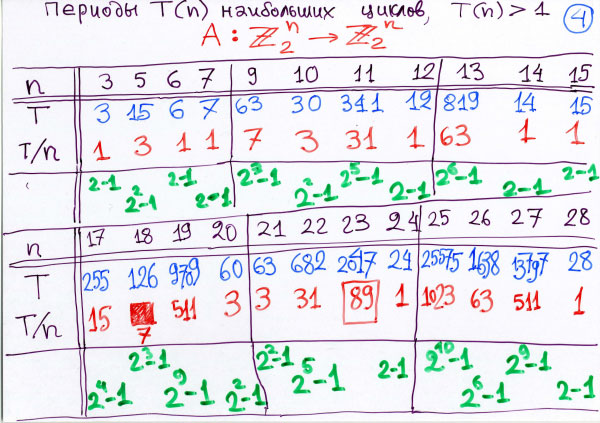 Периоды T(n) наибольших циклов, T(n) > 1 4
A : ℤ₂ⁿ → ℤ₂ⁿ
n 3 5 6 7 9 10 11 12 13 14 15
T 3 15 6 7 63 30 341 12 819 14 15
T/n 1 3 1 1 7 3 31 1 63 1 1
2-1 2²-1 2-1 2-1 2³-1 2²-1 2⁵-1 2-1 2⁶-1 2-1 2-1
n 17 18 19 20 21 22 23 24 25 26 27 28
T 255 126 9709 60 63 682 2047 24 25575 1638 13797 28
T/n 15 7 511 3 3 31 89 1 1023 63 511 1
2⁴-1 2³-1 2⁹-1 2²-1 2²-1 2⁵-1 2-1 2¹⁰-1 2⁶-1 2⁹-1 2-1